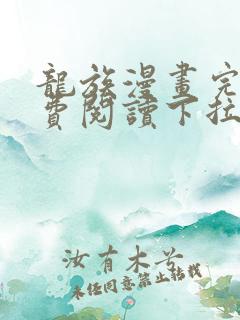 龍族漫畫完
費閱讀下拉
汝有木兮
未經同意禁止轉載